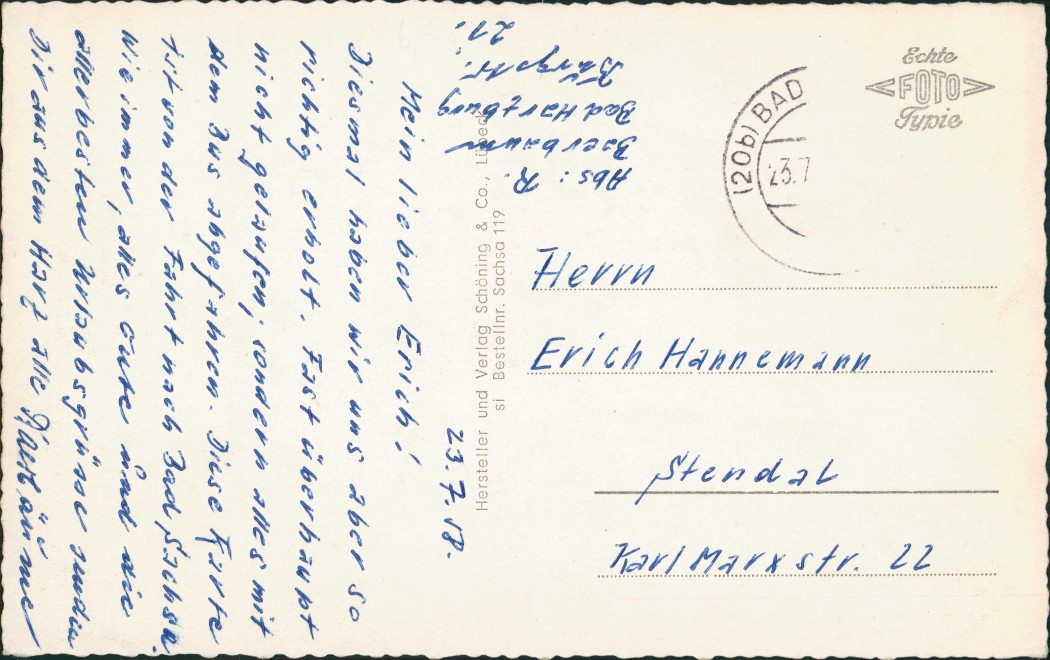 23.7.58.
Mein lieber Erich!
Diesmal haben wir uns aber so
richtig erholt. Fast überhaupt
nicht gelaufen, sondern alles mit
dem Bus abgefahren. Diese Karte
ist von der Fahrt nach Bad Sachsa.
Wie immer, alles Gute und die
allerbesten Urlaubsgrüsse senden
Dir aus dem Harz alle
Abs: R.
Baerbaum
Bad Harzburg
Burgstr.
21.
Hersteller und Verlag Schöning & Co., Lübeck
si Bestellnr. Sachsa 119
(20b) BAD
23.7
Echte
FOTO
Typie
Herrn
Erich Hannemann
Stendal
Karl Marxstr. 22